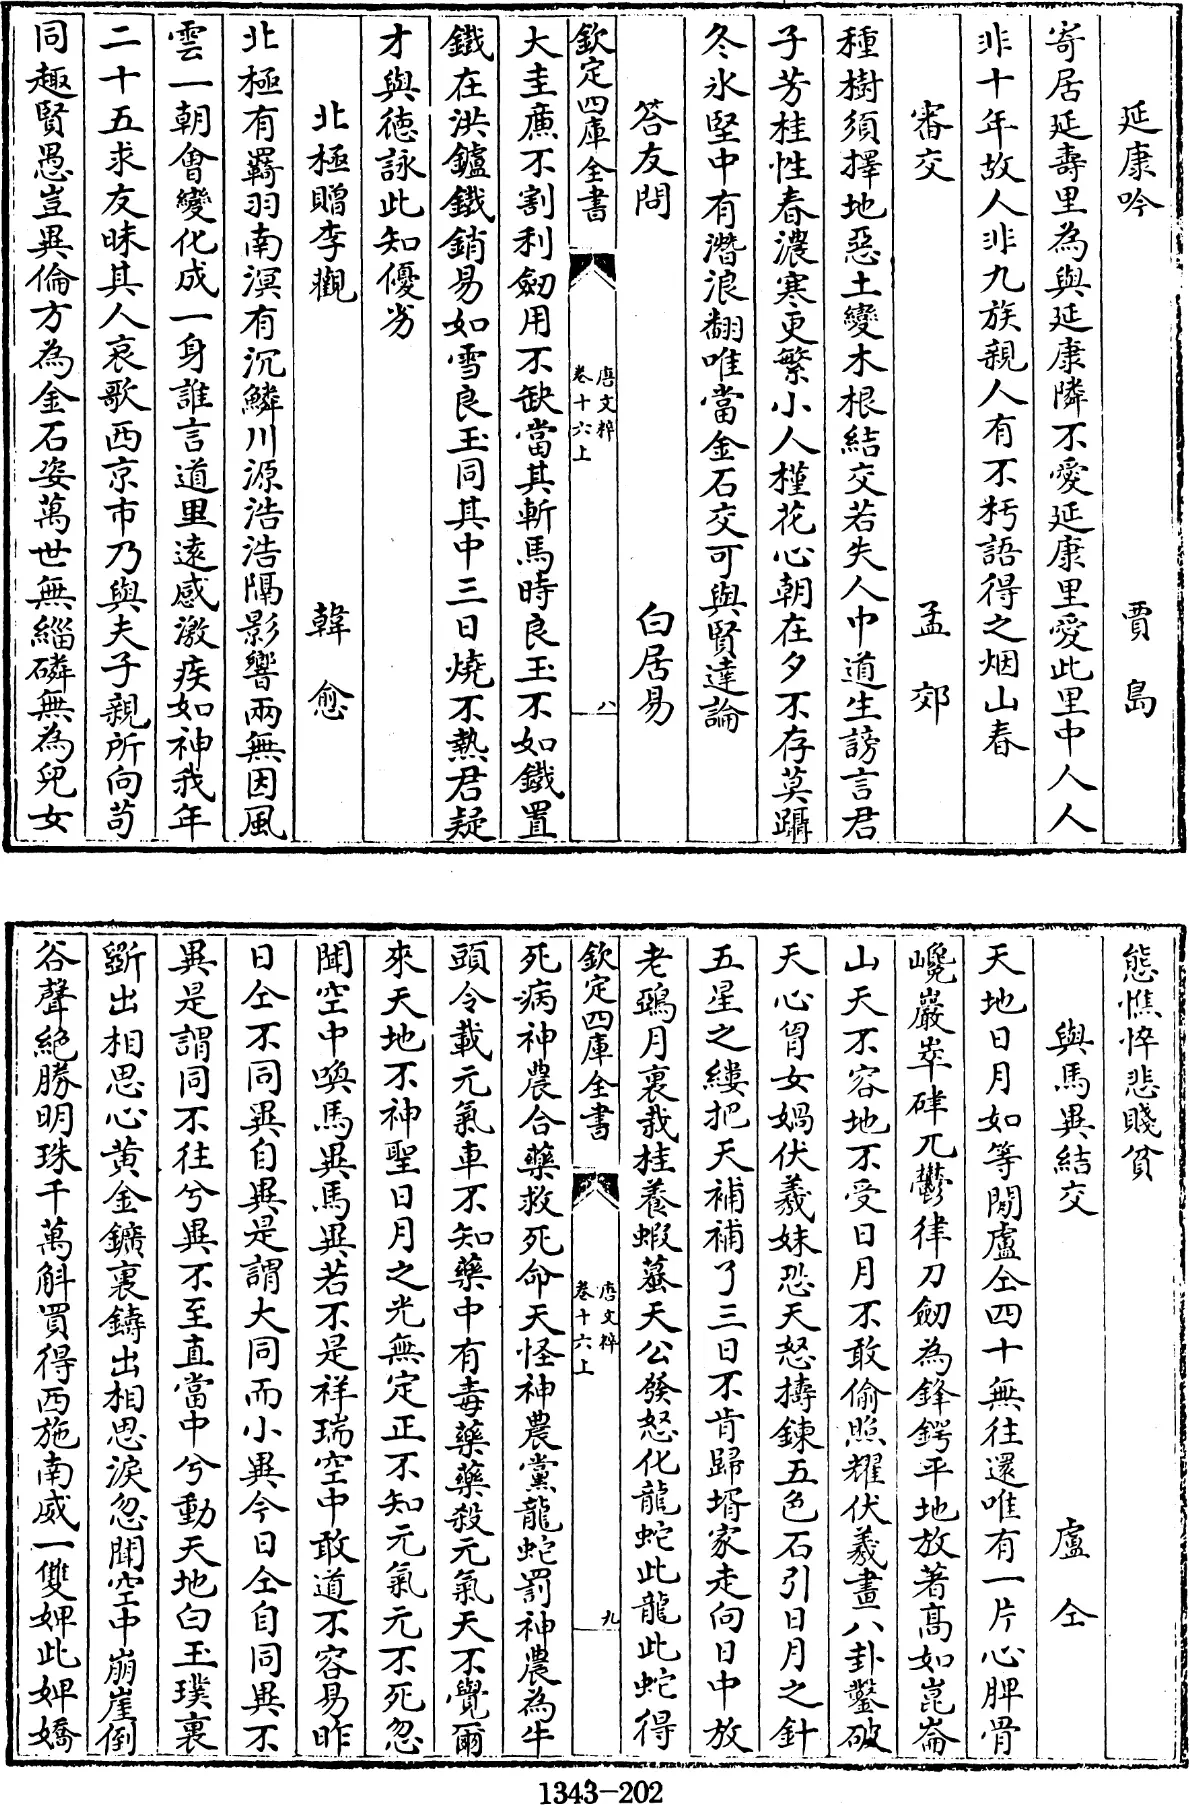 延康吟　賈島
寄居延壽里為與延康隣不愛延康里愛此里中人人
非十年故人非九族親人有不朽語得之烟山春
審交　孟郊
種樹須擇地惡土變木根結交若失人中道生謗言君
子芳桂性春濃寒更繁小人槿花心朝在夕不存莫躡
冬氷堅中有潛浪翻唯當金石交可與賢達論
答友問　白居易
欽定四庫全書　唐文粹卷十六上　八
大圭廌不割利劒用不缺當其斬馬時良玉不如鐵置
鐵在洪鑪鐵銷易如雪良玉同其中三日燒不熱君疑
才與德詠此知優劣
北極贈李觀　韓愈
北極有羇羽南溟有沉鱗川源浩浩隔影響兩無因風
雲一朝會變化成一身誰言道里遠感激疾如神我年
二十五求友昧其人哀歌西京市乃與夫子親所向苟
同趣賢愚豈異倫方為金石姿萬世無緇磷無為兒女
態憔悴悲賤貧
與馬異結交　盧仝
天地日月如等閒盧仝四十無往還唯有一片心脾骨
巉巖崒硉兀鬱律刀劒為鋒鍔平地放著髙如崑崙
山天不容地不受日月不敢偷照耀伏羲畫八卦鑿破
天心胷女媧伏羲妹恐天怒擣鍊五色石引日月之針
五星之縷把天補補了三日不肯歸壻家走向日中放
老鵶月裏栽桂養蝦蟇天公發怒化龍蛇此龍此蛇得
欽定四庫全書　唐文粹卷十六上　九
死病神農合藥救死命天怪神農黨龍蛇罰神農為牛
頭令載元氣車不知藥中有毒藥藥殺元氣天不覺爾
來天地不神聖日月之光無定正不知元氣元不死忽
聞空中喚馬異馬異若不是祥瑞空中敢道不容易昨
日仝不同異自異是謂大同而小異今日仝自同異不
異是謂同不往兮異不至直當中兮動天地白玉璞裏
斲出相思心黄金鑛裏鑄出相思淚忽聞空中崩崖倒
谷聲絶勝明珠千萬斛買得西施南威一雙婢此婢嬌
1343-202